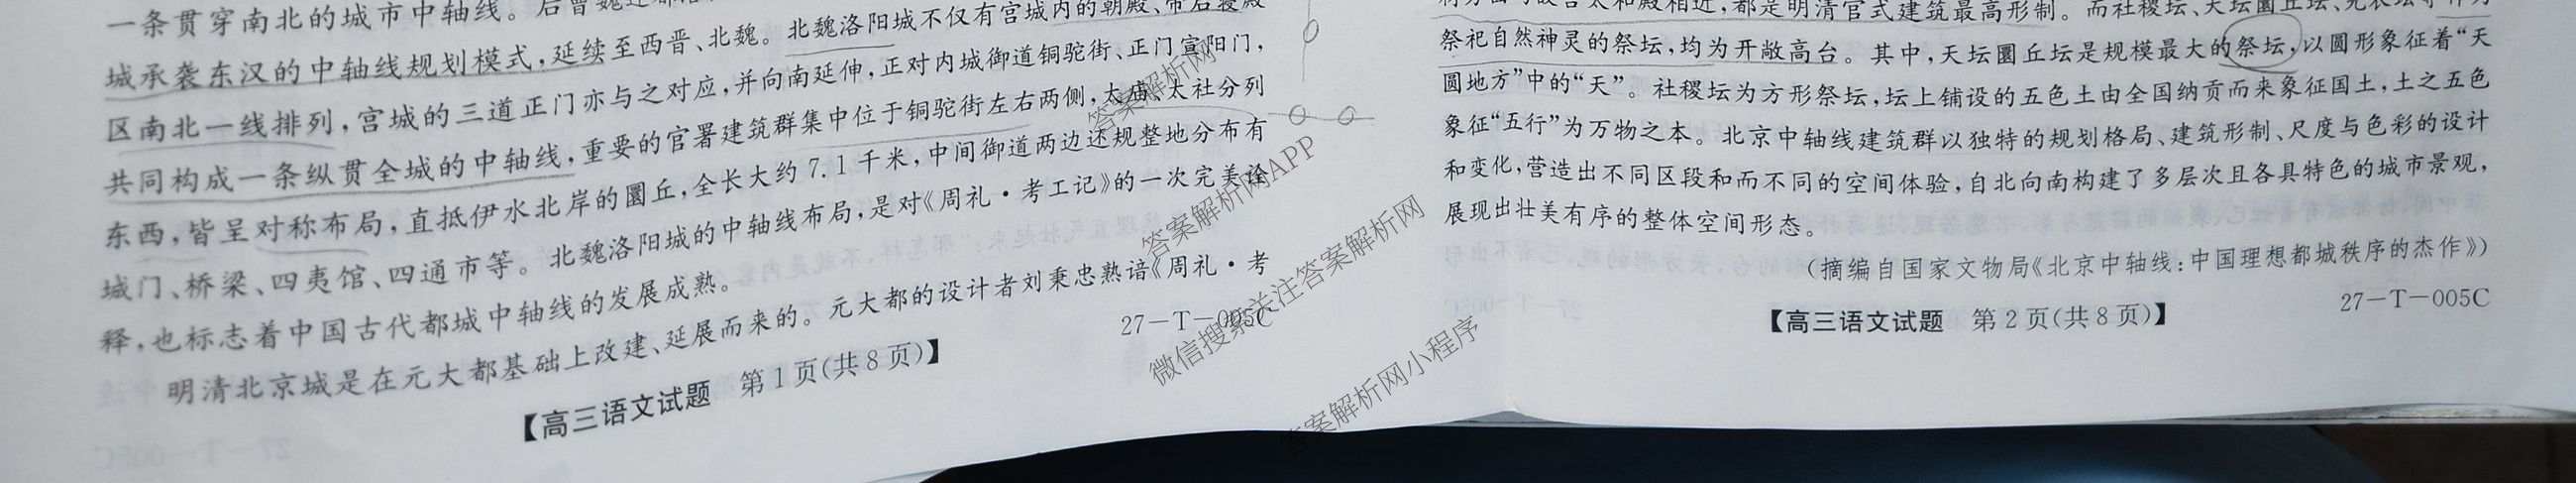 一条贯穿南北的城市中轴线。后曾魏
城承袭东汉的中轴线规划模式，延续至西晋、北魏。北魏洛阳城不仅有宫城内的朝殿、帝后寝殿
区南北一线排列，宫城的三道正门亦与之对应，并向南延伸，正对内城御道铜驼街、正门宣阳门，
共同构成一条纵贯全城的中轴线，重要的官署建筑群集中位于铜驼街左右两侧，太庙、太社分列
东西，皆呈对称布局，直抵伊水北岸的圜丘，全长大约7.1千米，中间御道两边还规整地分布有
城门、桥梁、四夷馆、四通市等。北魏洛阳城的中轴线布局，是对《周礼·考工记》的一次完美诠
释，也标志着中国古代都城中轴线的发展成熟。
明清北京城是在元大都基础上改建、延展而来的。元大都的设计者刘秉忠熟谙《周礼·考
【高三语文试题　第1页(共8页)】
27－T－005C
太和殿相近，都是明清官式建筑最高形制。而社稷坛、天坛圜丘坛、先农坛等作为
祭祀自然神灵的祭坛，均为开敞高台。其中，天坛圜丘坛是规模最大的祭坛，以圆形象征着“天
圆地方”中的“天”。社稷坛为方形祭坛，坛上铺设的五色土由全国纳贡而来象征国土，土之五色
象征“五行”为万物之本。北京中轴线建筑群以独特的规划格局、建筑形制、尺度与色彩的设计
和变化，营造出不同区段和而不同的空间体验，自北向南构建了多层次且各具特色的城市景观，
展现出壮美有序的整体空间形态。
(摘编自国家文物局《北京中轴线：中国理想都城秩序的杰作》)
【高三语文试题　第2页(共8页)】
27－T－005C
答案解析网
答案解析网APP
微信搜索关注答案解析网
答案解析网小程序